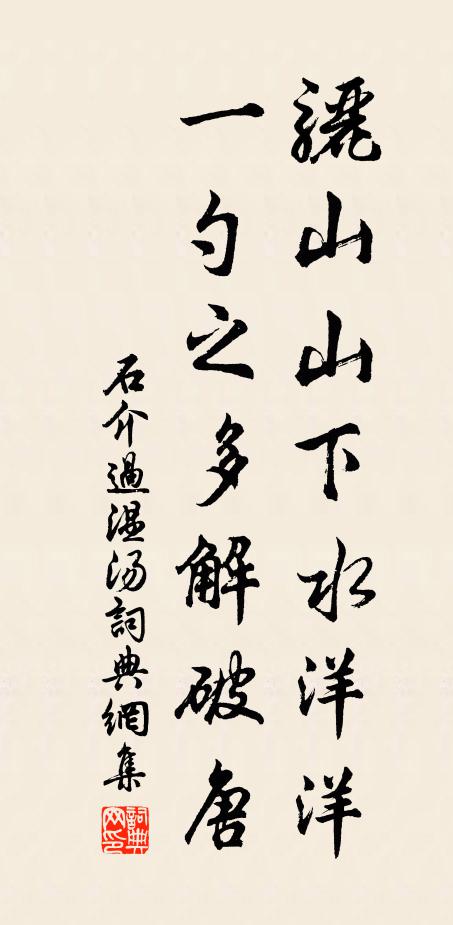 驪山山下水洋洋
一勺之多解破唐
石介過温湯詞典網集
詞典網印